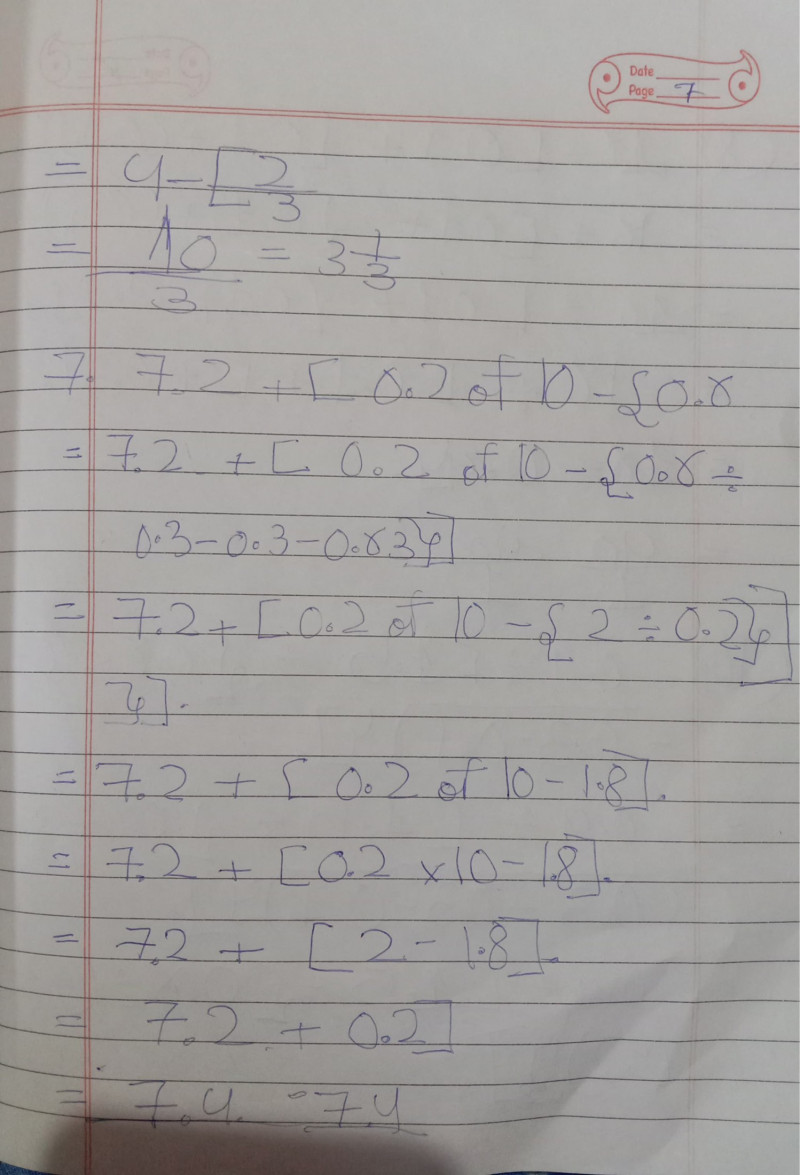 Date
Page 7
= 4 - [2/3
= 10/3 = 3 1/3
7. 7.2 + [ 0.2 of 10 - {0.8
= 7.2 + [ 0.2 of 10 - {0.8 ÷
0.3 - 0.3 - 0.83}]
= 7.2 + [ 0.2 of 10 - { 2 ÷ 0.2}]
}].
= 7.2 + [ 0.2 of 10 - 1.8].
= 7.2 + [0.2 × 10 - 1.8].
= 7.2 + [ 2 - 1.8].
= 7.2 + 0.2]
= 7.4 7.4